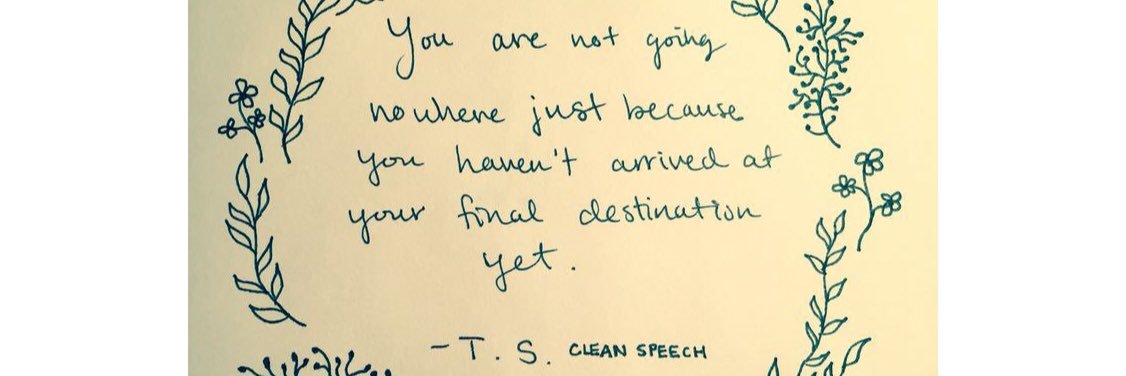 You are not going
nowhere just because
you haven't arrived at
your final destination
yet.
- T. S. CLEAN SPEECH